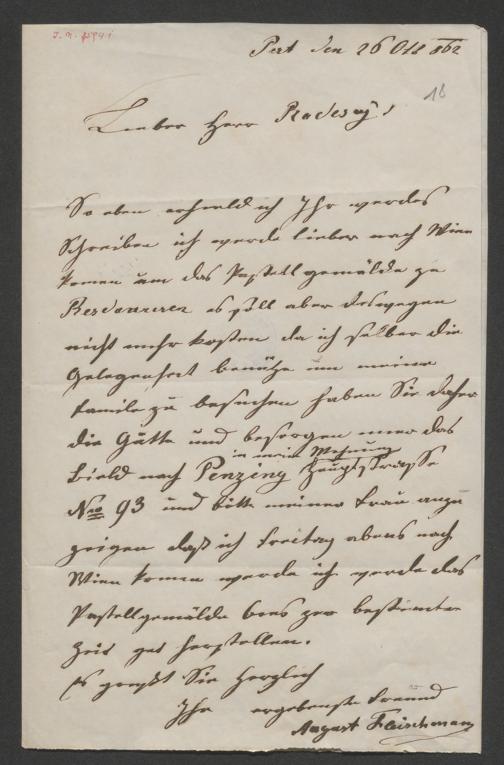 Pest den 26 Okt 862
16
Lieber Herr Radesey!
So eben erhield ich Ihr werdes
Schreiben ich werde lieber nach Wien
komen um das Pastellgemälde zu
Restauriren es soll aber deswegen
nicht mehr kosten da ich selber die
Gelegenheit benütze um meine
Famile zu besuchen haben Sie daher
die Gütte und besorgen mir das
in mein Wohnung
Bield nach Penzing Hauptstrasse
Nro 93 und bitte meiner Frau anzu
zeigen daß ich Freitag abens nach
Wien komen werde ich werde das
Pastellgemälde bies zur bestimten
Zeit gut herstellen.
Es grüßt Sie herzlich
Ihr ergebenste Freund
August Fleischmann